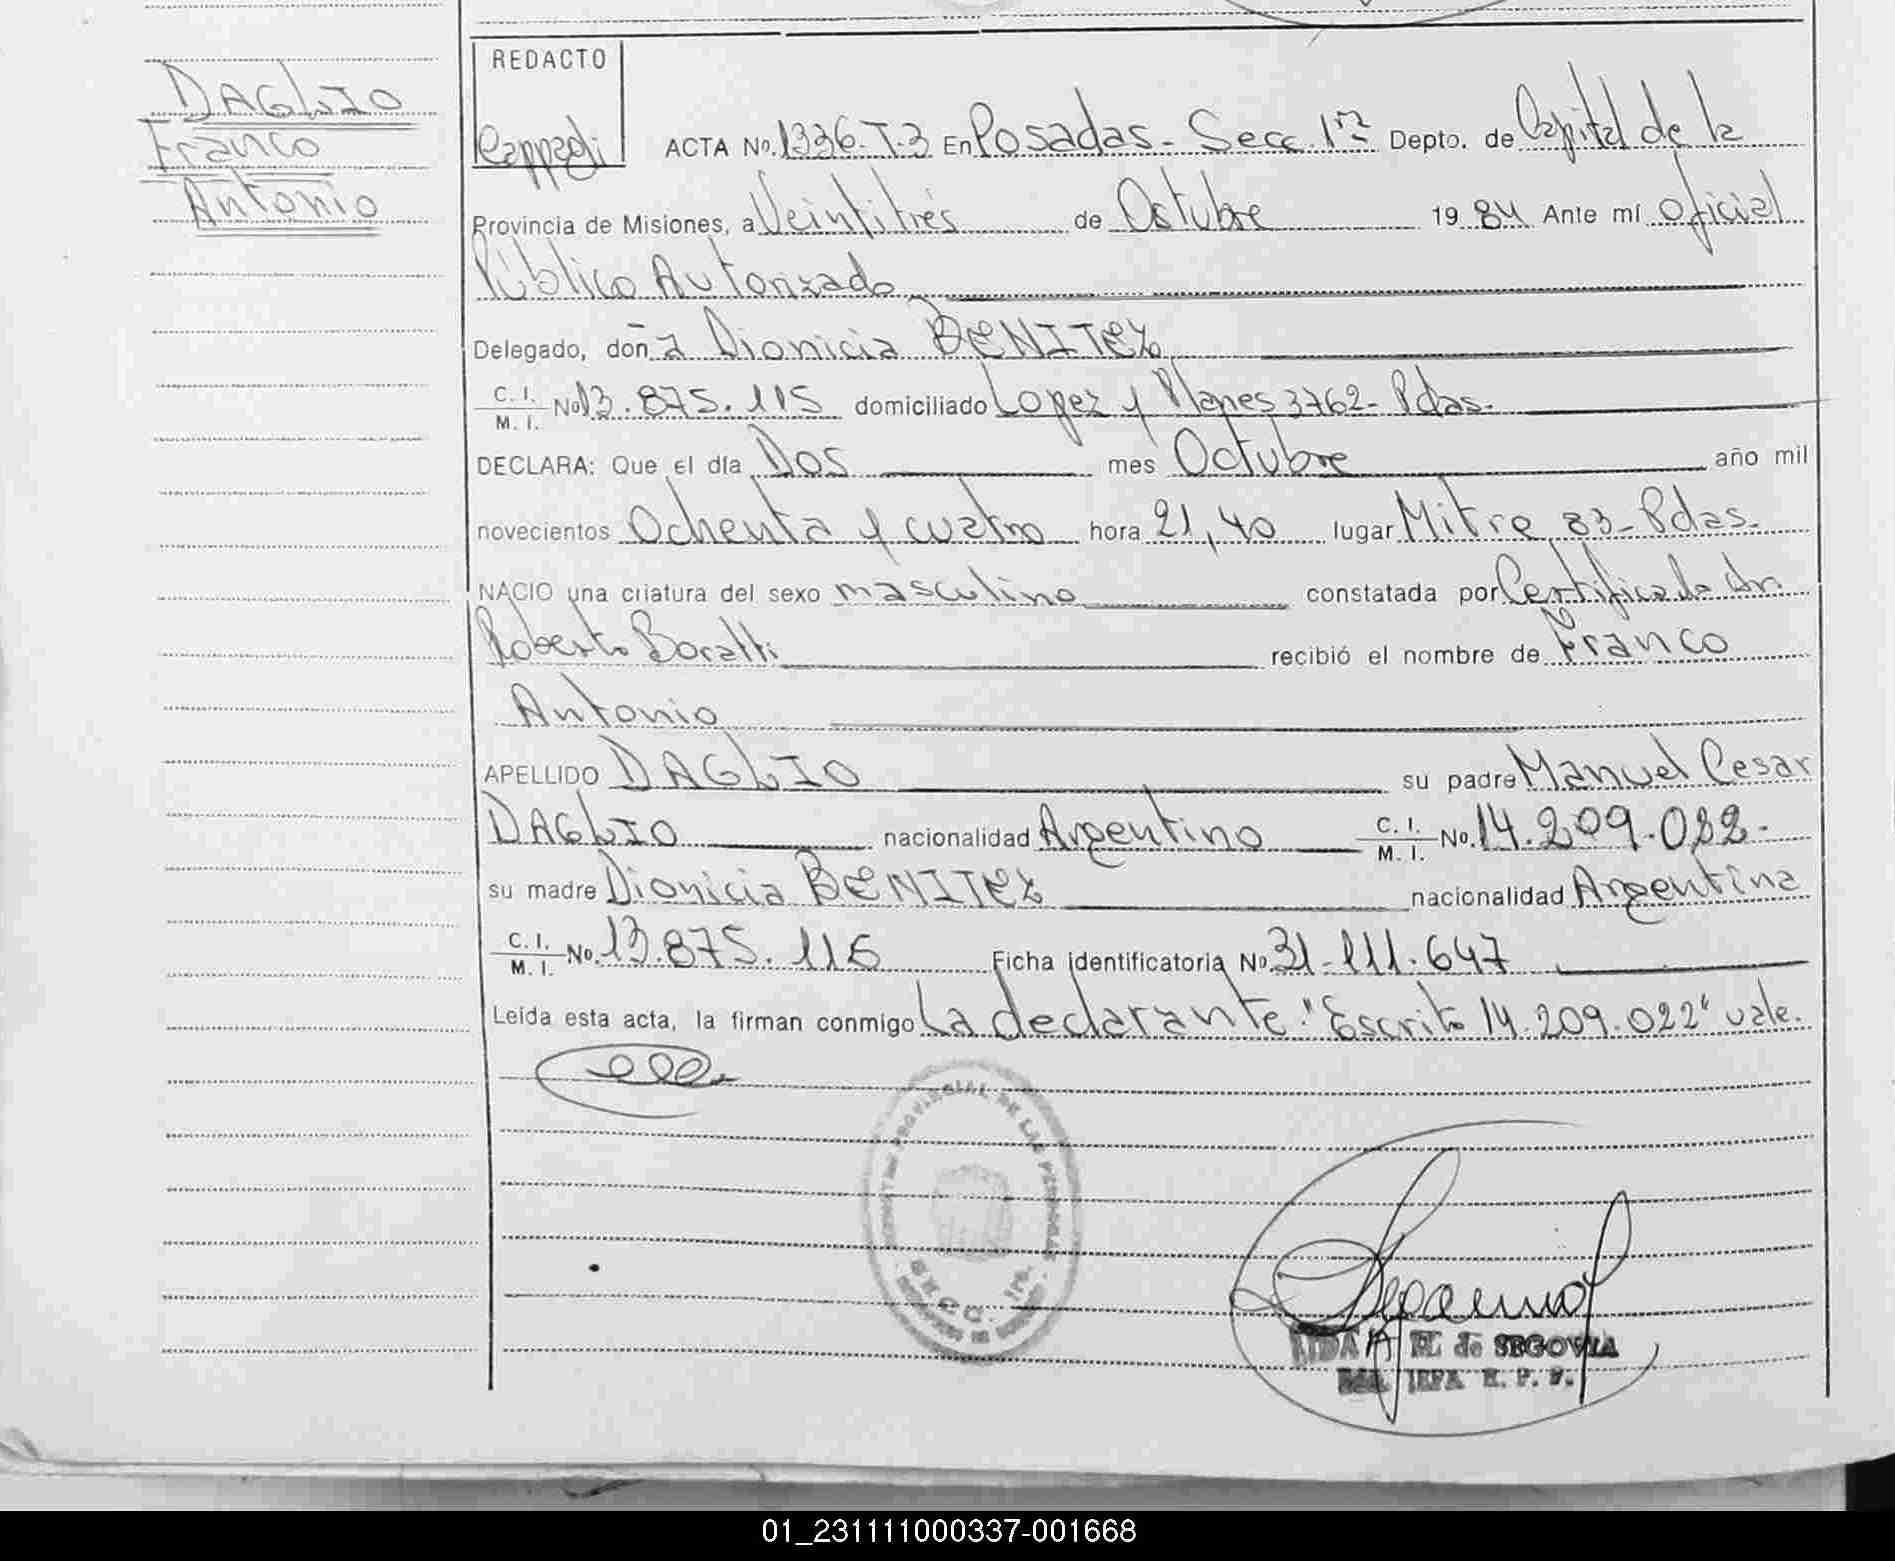 DAGLIO
Franco
Antonio
REDACTO
ACTA No. 1336-T-3 En Posadas - Secc. 1ra Depto. de Capital de la
Provincia de Misiones, a Veintitrés de Octubre 19 84 Ante mí oficial
Público Autorizado
Delegado, don a Dionicia BENITEZ
C. I. M. I. No 13.875.115 domiciliado Lopez y Planes 3762 - Pdas.
DECLARA: Que el día Dos mes Octubre año mil
novecientos Ochenta y cuatro hora 21,40 lugar Mitre 83 - Pdas.
NACIO una criatura del sexo masculino constatada por Certificado dr
Roberto recibió el nombre de Franco
Antonio
APELLIDO DAGLIO su padre Manuel Cesar
DAGLIO nacionalidad Argentino C. I. M. I. No. 14.209.022-
su madre Dionicia BENITEZ nacionalidad Argentina
C. I. M. I. No. 13.875.115 Ficha identificatoria No 31-111.647
Leída esta acta, la firman conmigo La declarante. "Escrito 14.209.022" vale.
PROVINCIAL DE LAS PERSONAS
SECC. 1ra.
de SEGOVIA